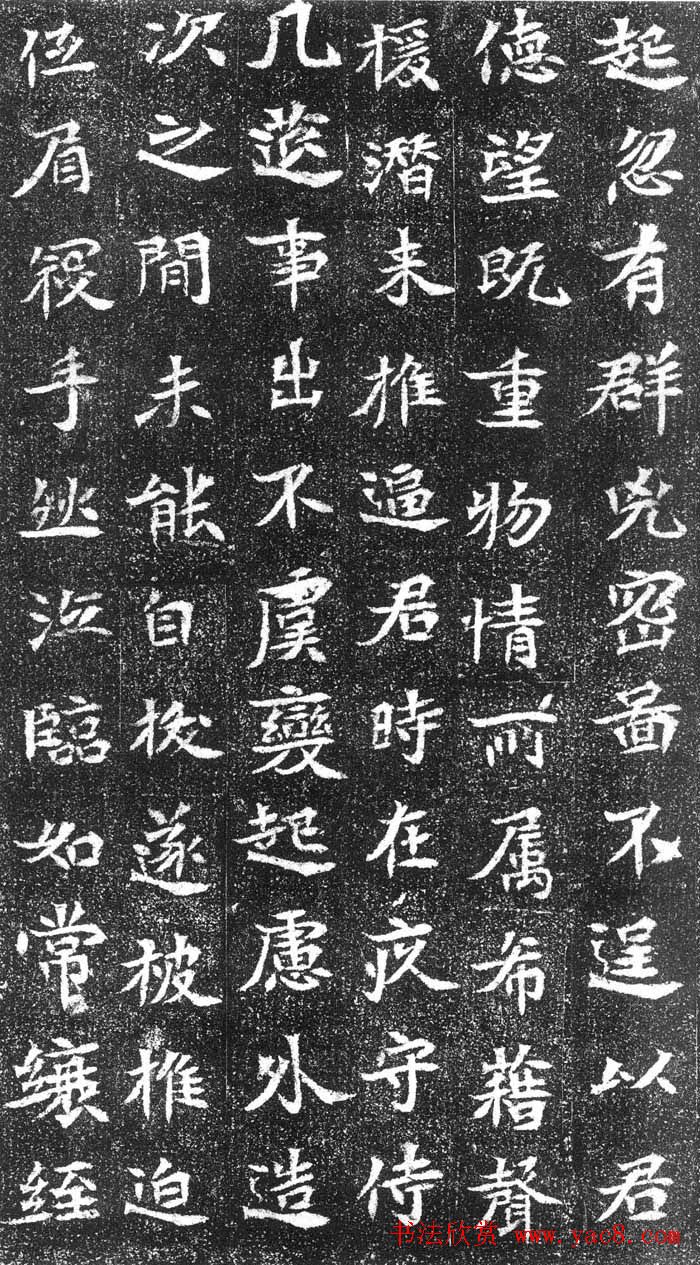 起忽有群兇密啚不逞以君
德望既重物情所属希藉聲
援潜来推逼君時在疚守侍
几莚事出不虞變起慮外造
次之間未能自拔遂被推迫
低眉寇手然泣臨如常縗絰
书法欣赏 www.yac8.com